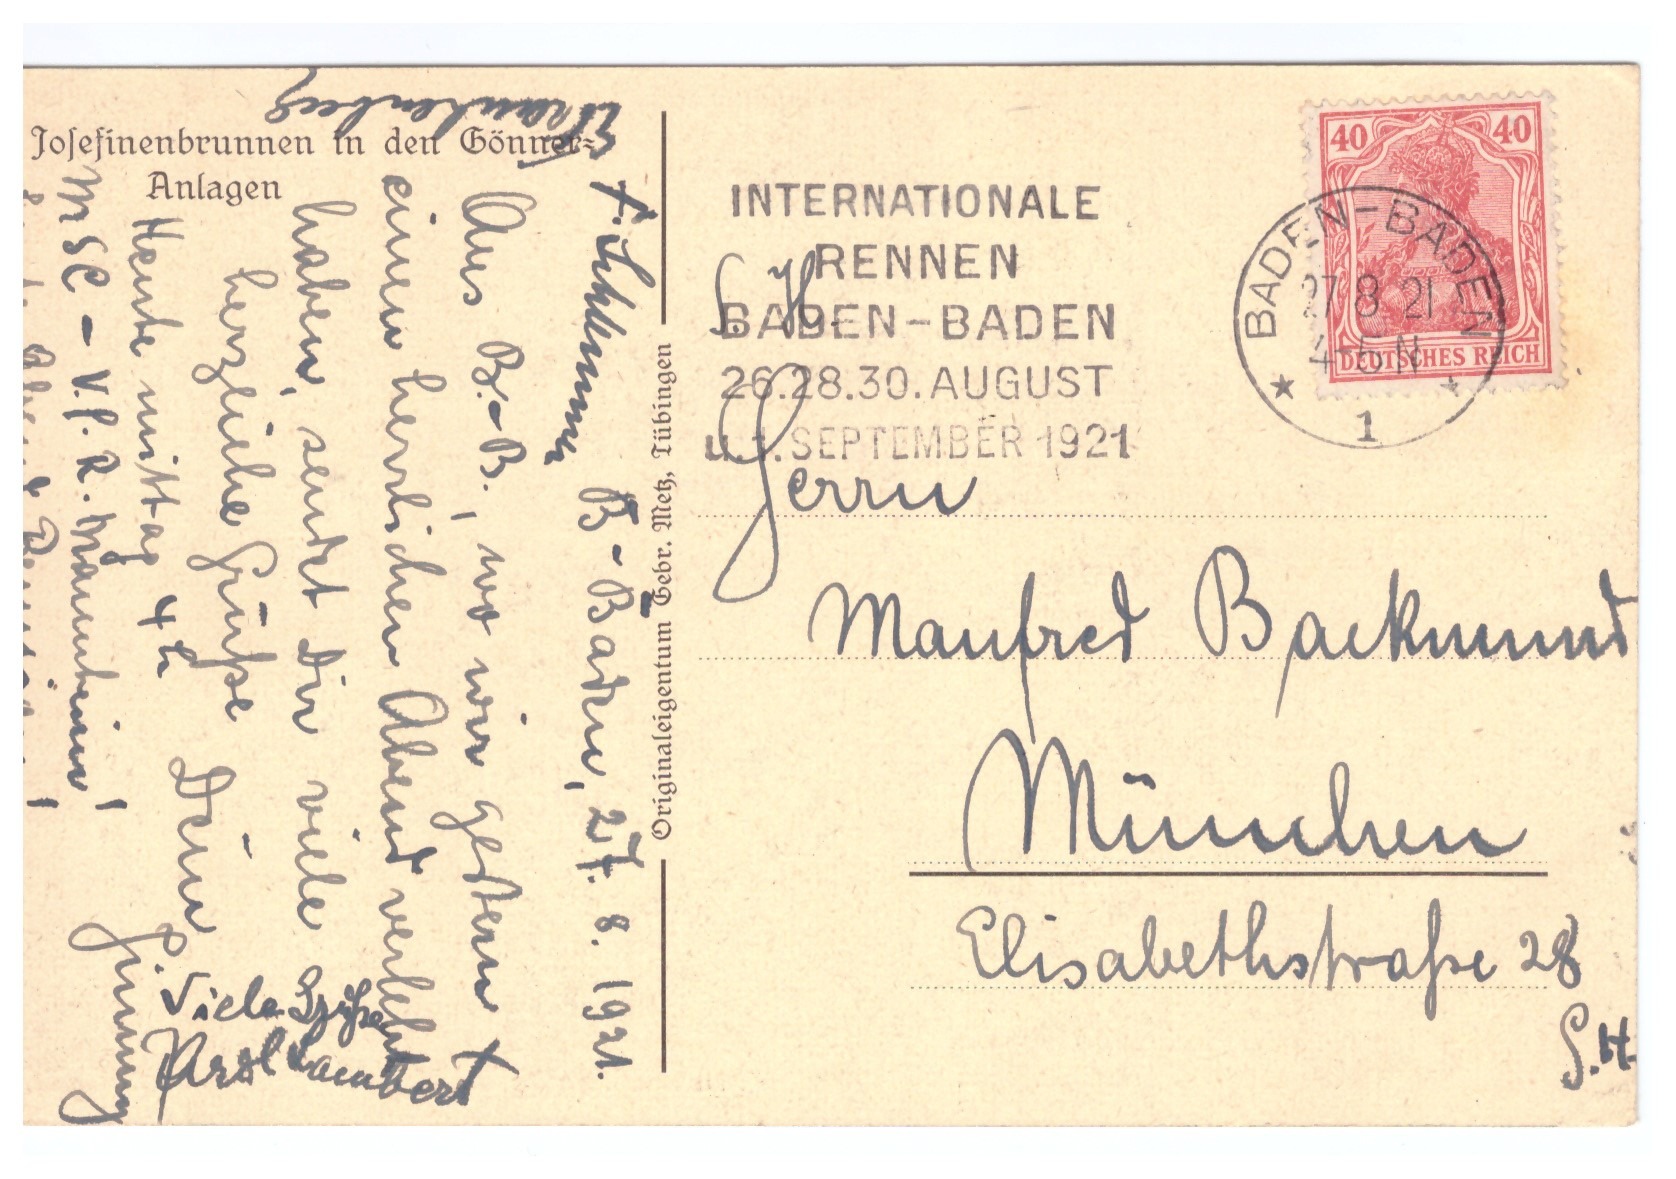 Josefinenbrunnen in den Gönner-
Anlagen
B-Baden, 27. 8. 1921.
Aus B.-B., wo wir gestern
einen herrlichen Abend verlebt
haben, sendet Dir viele
herzliche Grüße Dein
Heute mittag 4h
MSC - V.f.R. Mannheim!
Viele Grüße
Lambert
Originaleigentum Gebr. Metz, Tübingen
INTERNATIONALE
RENNEN
BADEN-BADEN
26.28.30. AUGUST
u. 1. SEPTEMBER 1921
40 40
DEUTSCHES REICH
BADEN-BADEN
27 8 21
4-5 N
1
S. H.
Herrn
Manfred Backmund
München
Elisabethstraße 28
G.H.